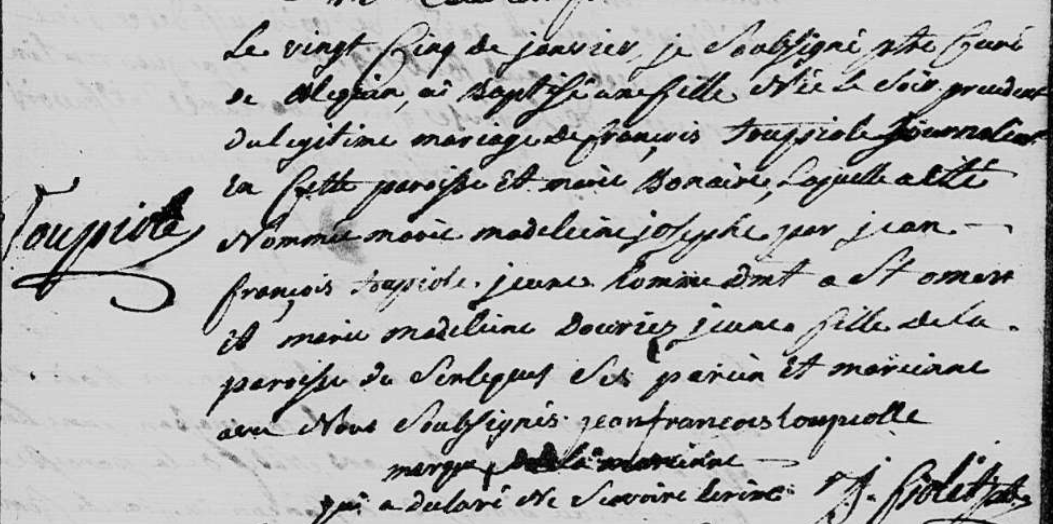 Le vingt Cinq de janvier, je Soubsigné ptre Curé
de ai Baptisé une fille Née le Soir precedent
du legitime mariage de françois toupiole journalier
en Cette paroisse Et marie Bonaire, Laquelle a été
Toupiole
Nommée marie madeleine josephe par jean
françois toupiole jeune homme dmt a St omer
et marie madeleine Douriez jeune fille de la
paroisse de Senleques Ses parein Et mareinne
avec Nous Soubsignés jean francois toupiolle
marque de la mareinne
qui a declaré Ne ScavoireEcrire J.